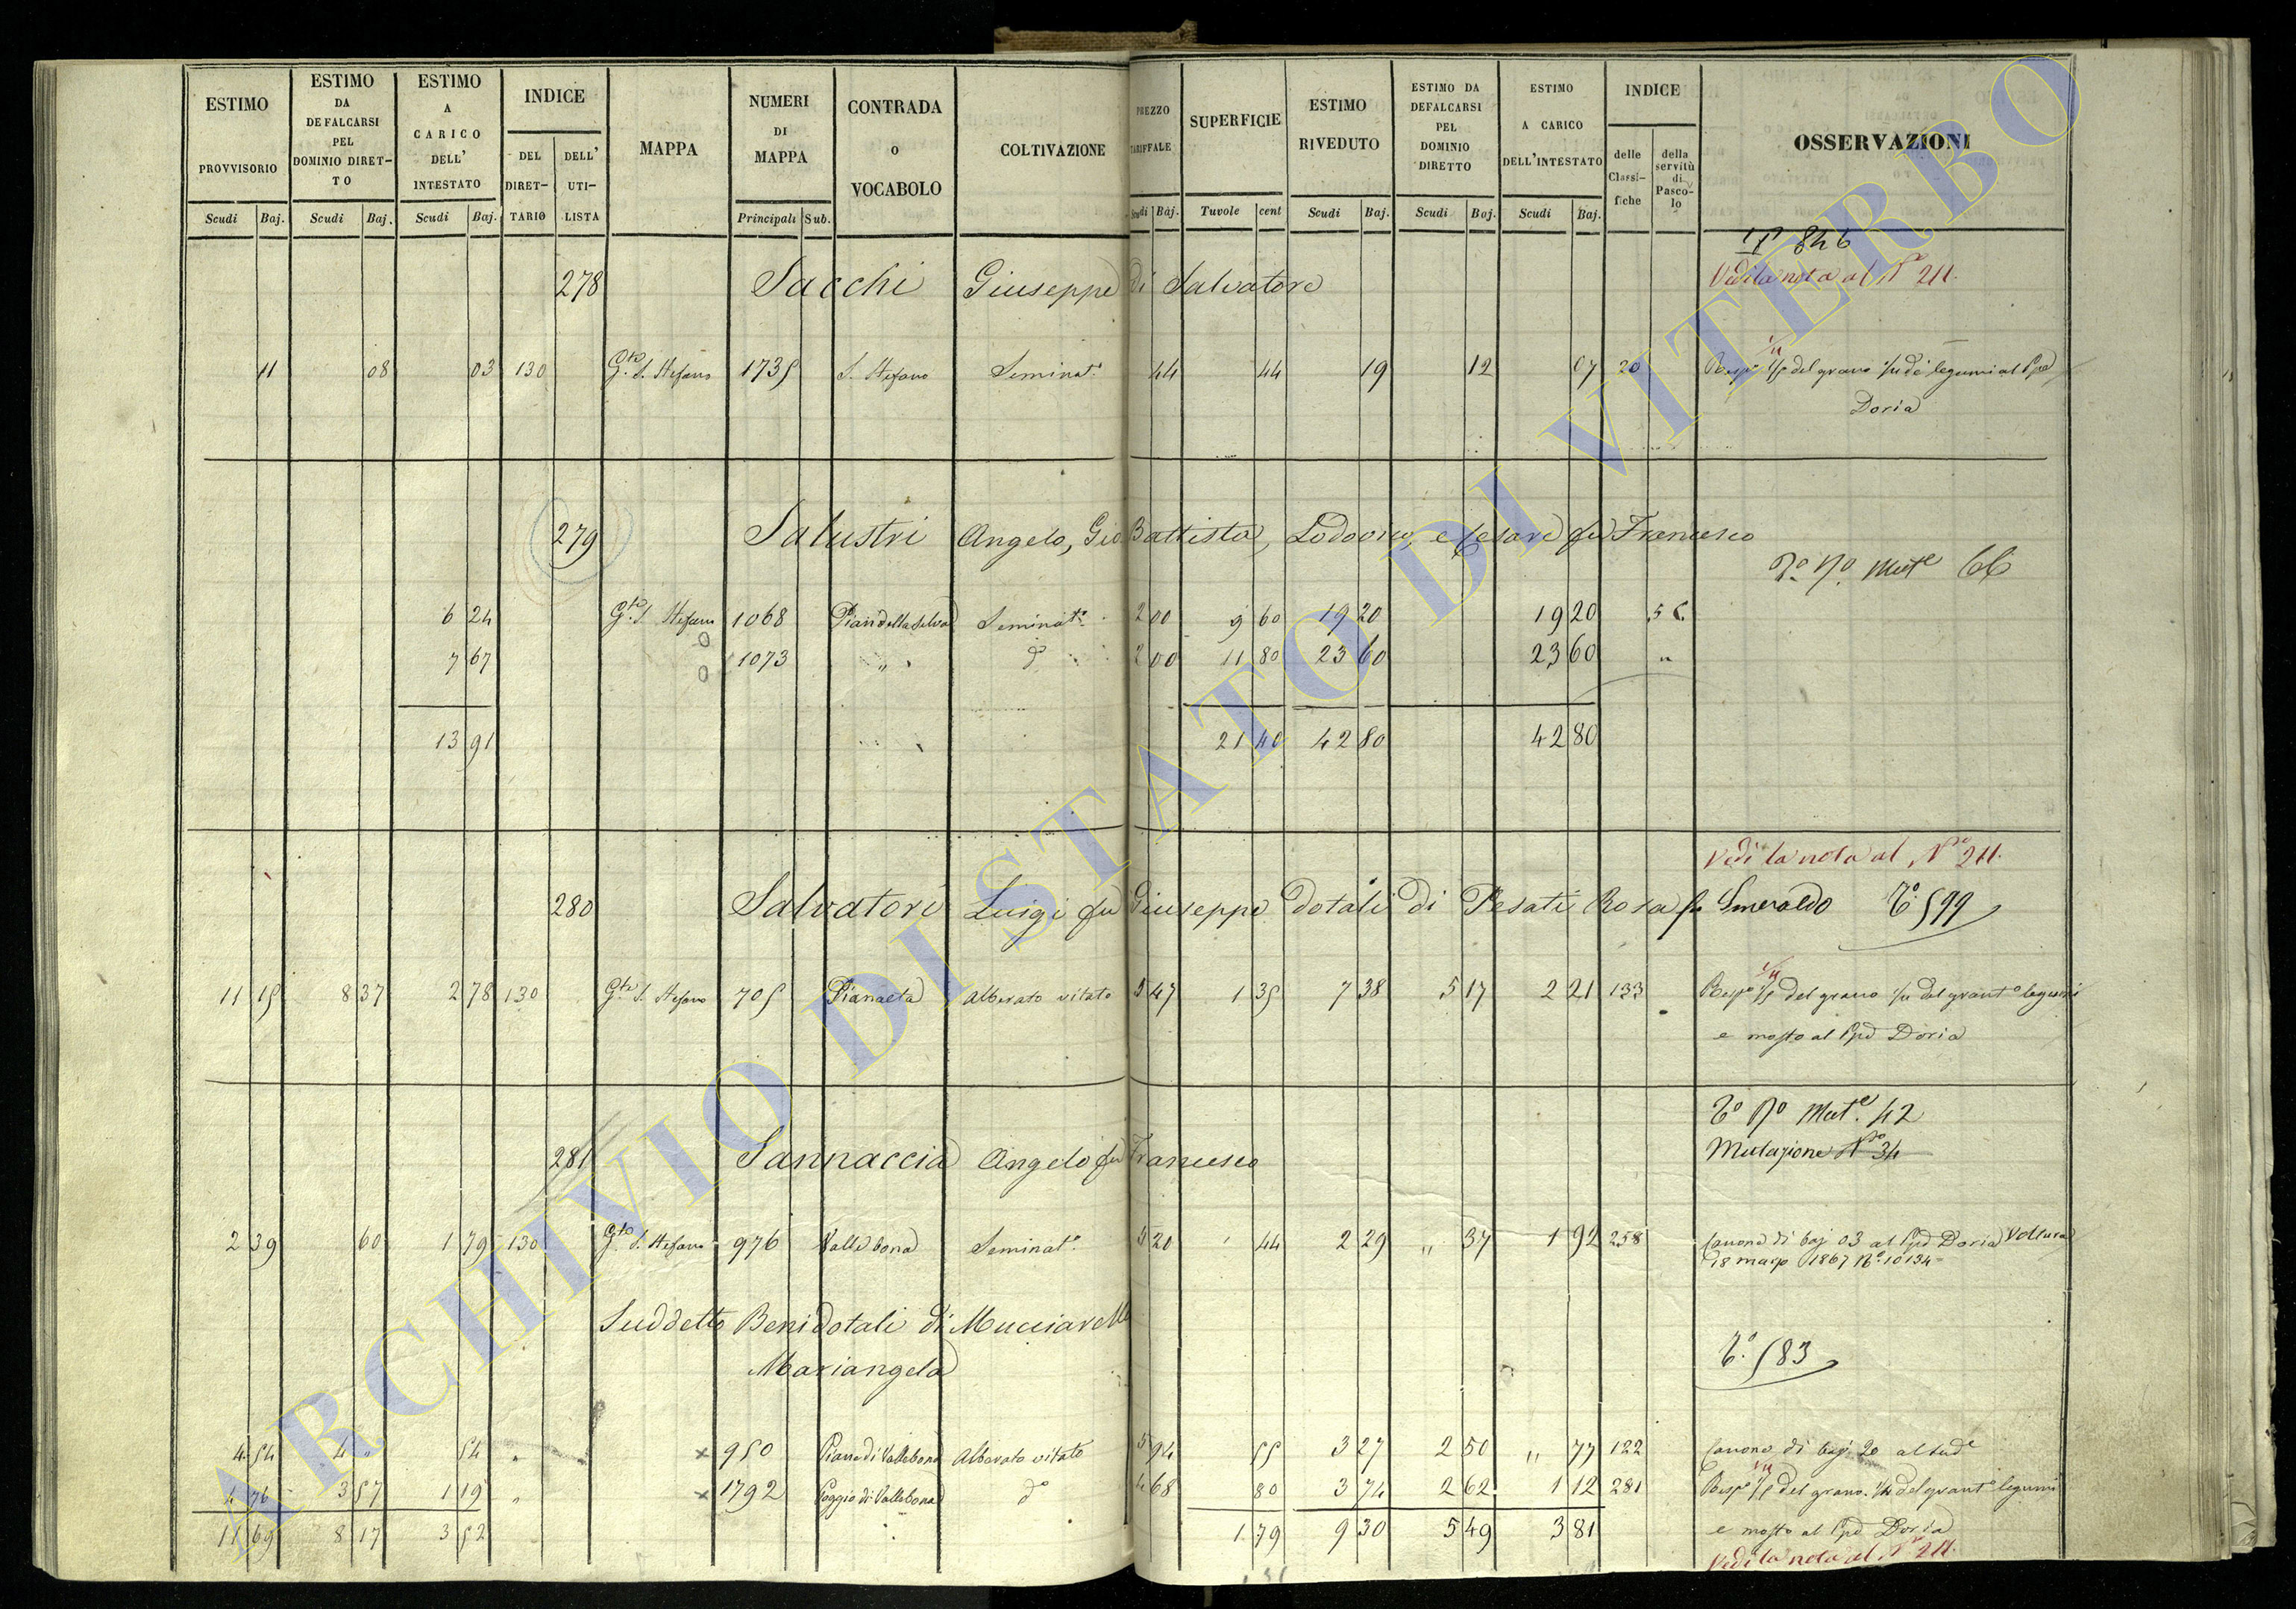 ESTIMO PROVVISORIO Scudi Baj.
ESTIMO DA DEFALCARSI PEL DOMINIO DIRET-TO Scudi Baj.
ESTIMO A CARICO DELL' INTESTATO Scudi Baj.
INDICE DEL DIRET-TARIO DELL' UTI-LISTA
MAPPA
NUMERI DI MAPPA Principali Sub.
CONTRADA O VOCABOLO
COLTIVAZIONE
PREZZO TARIFFALE Scudi Baj.
SUPERFICIE Tavole cent
ESTIMO RIVEDUTO Scudi Baj.
ESTIMO DA DEFALCARSI PEL DOMINIO DIRETTO Scudi Baj.
ESTIMO A CARICO DELL'INTESTATO Scudi Baj.
INDICE delle Classi-fiche della servitù di Pasco-lo
OSSERVAZIONI
846
Vedi la nota al N° 211.
278 Sacchi Giuseppe di Salvatore
11 08 03 130 Gte S. Stefano 1735 S. Stefano Seminat° 44 44 19 12 07 20 Rispe 1/5 del grano 1/4 di legumi al Ppe
Doria
279 Salustri Angelo, Gio Battista, Lodovico, e Cesare fu Francesco
T° N° Mute 66
6 24 Gte S. Stefano 1068 Pian della Selva Seminat° 2 00 9 60 19 20 19 20 56
7 67 1073 " d° 2 00 11 80 23 60 23 60 "
13 91 21 40 42 80 42 80
Vedi la nota al N° 211.
280 Salvatori Luigi fu Giuseppe Dotali di Pesati Rosa fu Smeraldo T° 599
11 15 8 37 2 78 130 Gte S. Stefano 705 Pianaeta Alberato vitato 5 47 1 35 7 38 5 17 2 21 133 Rispe 1/5 del grano 1/4 del grant° legumi
e mosto al Ppe Doria
T° N° Mute. 42
Mutazione N° 34
281 Sannaccia Angelo fu Francesco
2 39 60 1 79 130 Gte S. Stefano 976 Valle bona Seminat° 5 20 44 2 29 " 37 1 92 258 Canone di baj 03 al Ppe Doria Voltura
18 marzo 1867 N° 10134
Suddetto Beni dotali di Mucciarelli
Mariangela
T° 583
4 54 4 " 54 " × 950 Piana di Vallebona Alberato vitato 5 94 55 3 27 2 50 " 77 122 Canone di baj. 20 al sude
4 76 3 57 1 19 " × 1792 Poggio di Vallebona d° 4 68 80 3 74 2 62 1 12 281 Rispe 1/5 del grano 1/4 del grant° legumi
11 69 8 17 3 52 1 79 9 30 5 49 3 81 e mosto al Ppe Doria
Vedi la nota al N° 211.
ARCHIVIO DI STATO DI VITERBO